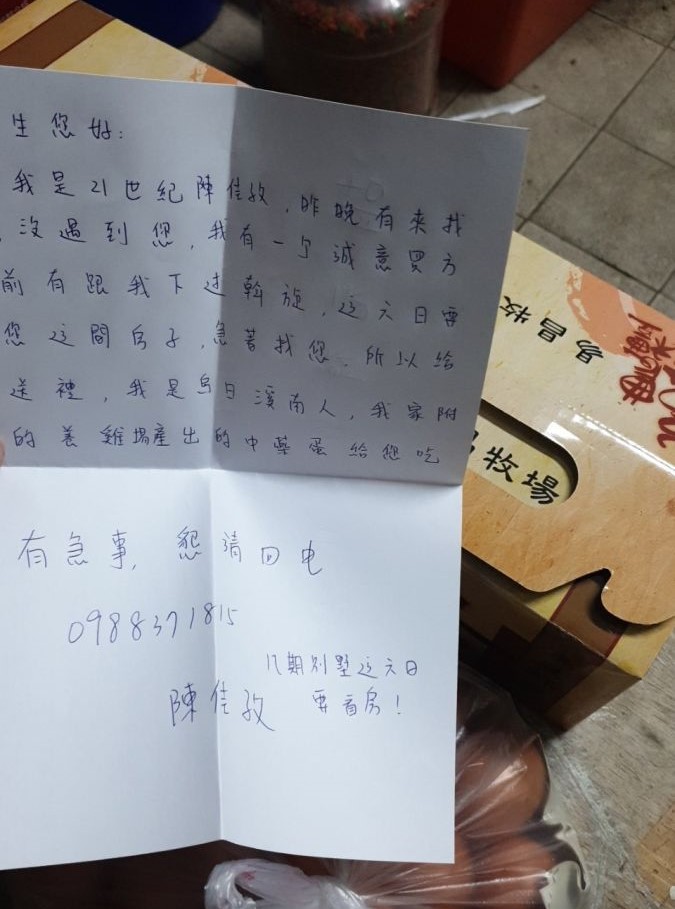 生您好：
我是21世紀陳佳孜，昨晚有來找
，沒遇到您，我有一个誠意買方
前有跟我下過斡旋，這六日要
您這間房子，急著找您，所以給
送禮，我是烏日溪南人，我家附
的養雞場產出的中藥蛋給您吃
有急事，懇請回电
0988371815
八期別墅這六日
要看房！
陳佳孜
易昌牧
牧場